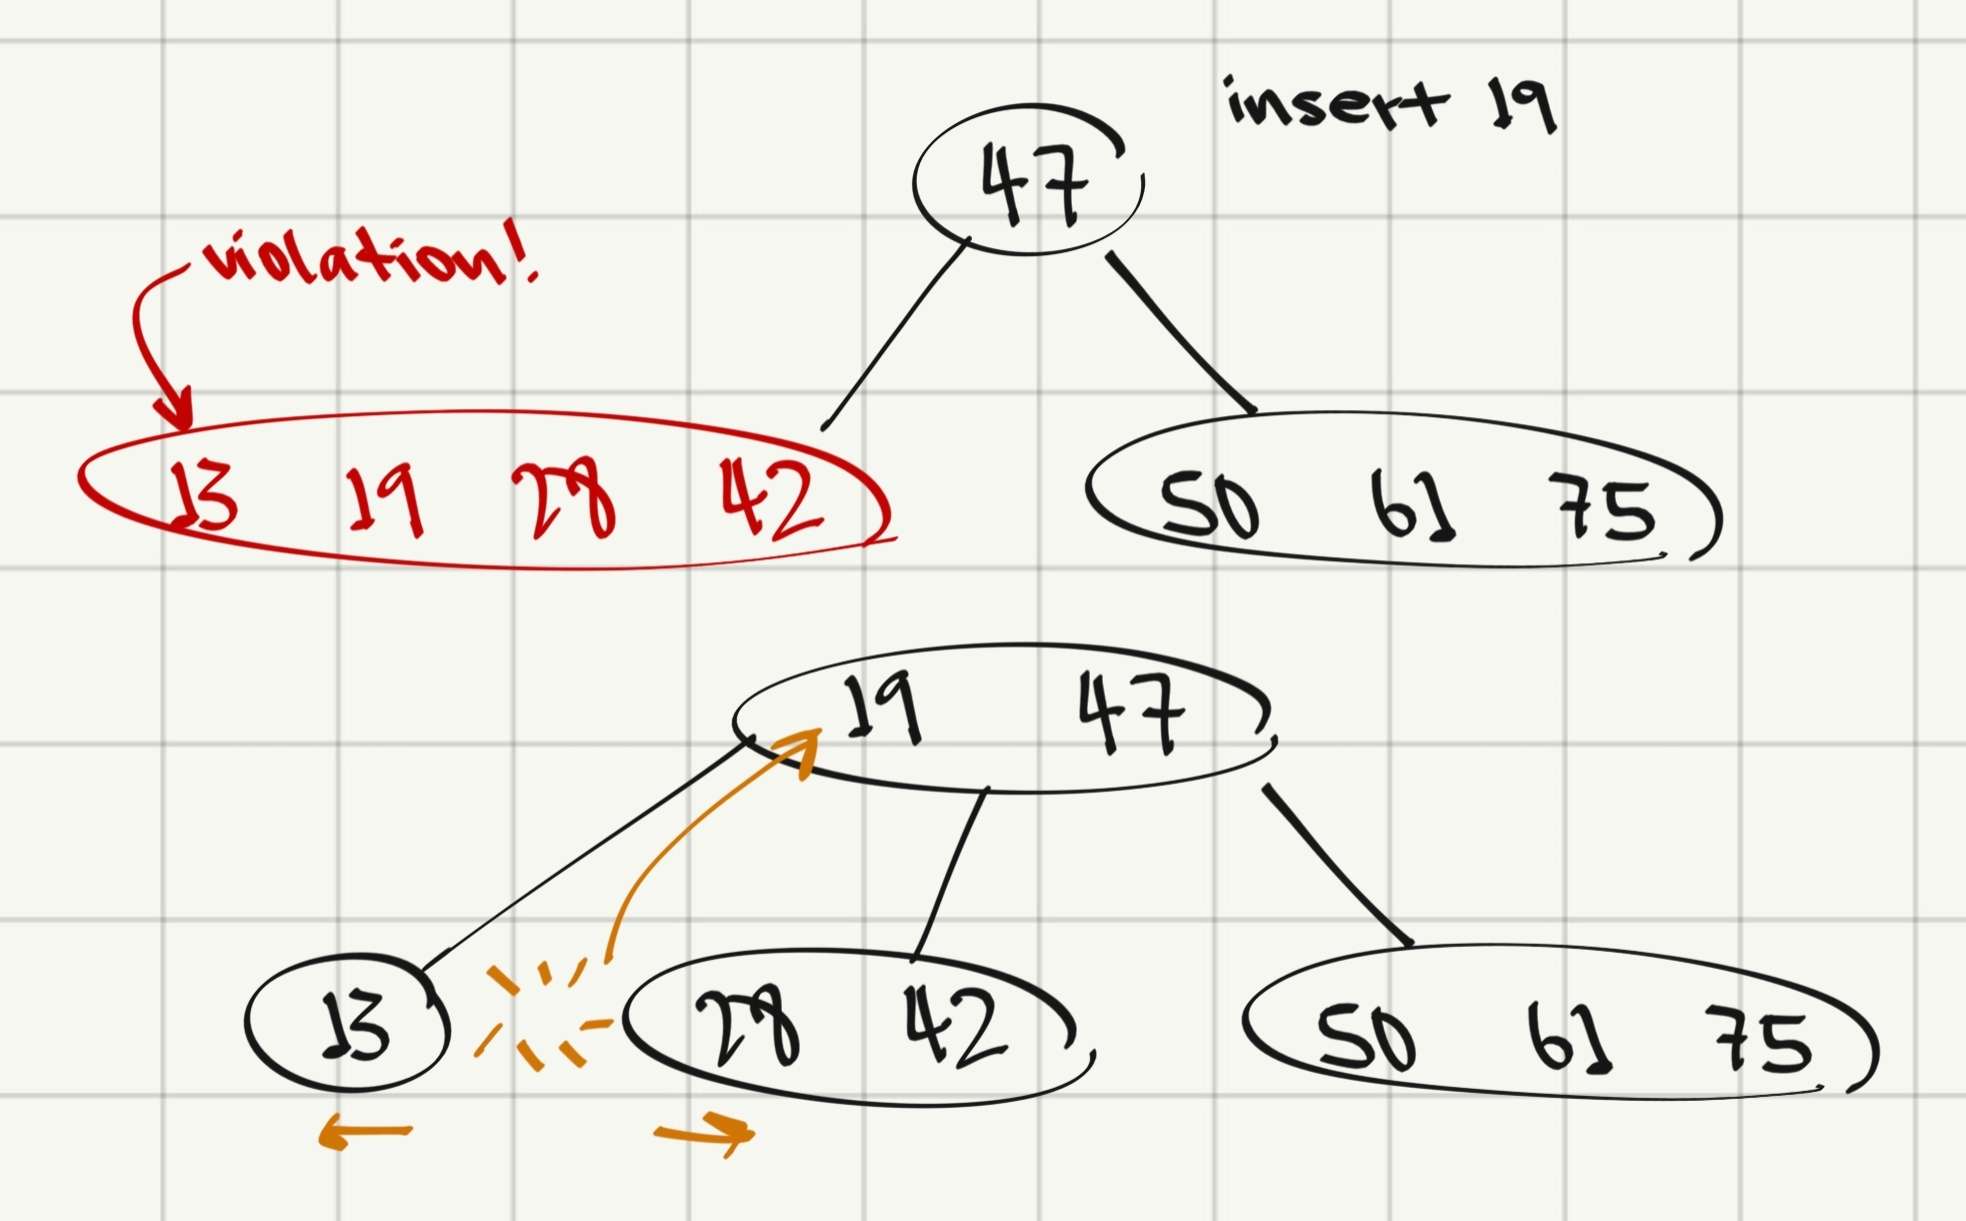 insert 19
47
violation!
13 19 28 42
50 61 75
19 47
13
28 42
50 61 75